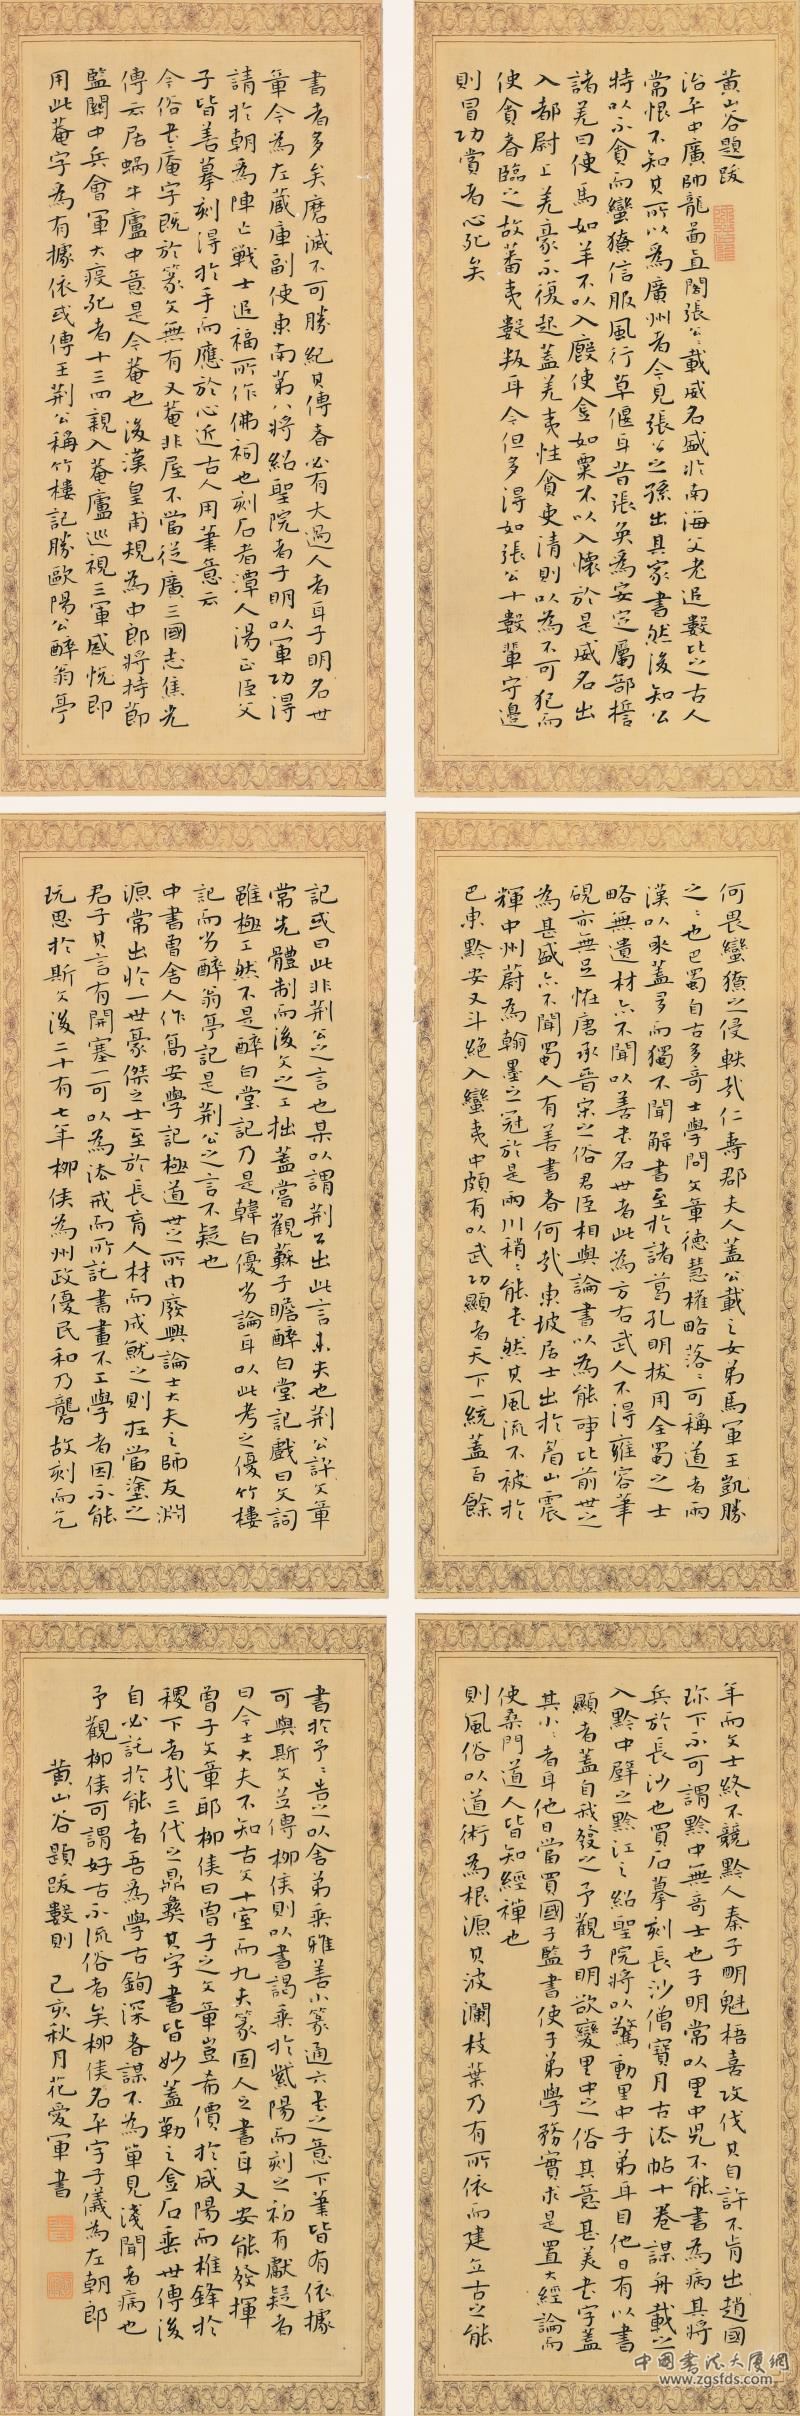 黄山谷題跋
治平中廣帥龍啚直閣張公載威名盛於南海父老追數比之古人
常恨不知其所以為廣州者今見張公之孫出其家書然後知公
特以不貪而蠻獠信服風行草偃耳昔張奐為安定屬部
諸羌曰使馬如羊不以入廄使金如粟不以入懷於是威名出
入都尉上羌豪不復起蓋羌夷性貪吏清則以為不可犯而
使貪者臨之故蕃夷數叛耳今但多得如張公十數輩守邊
則冒功賞者心死矣
何畏蠻獠之侵軼哉仁壽郡夫人蓋公載之女弟馬軍王凱勝
之之也巴蜀自古多奇士學問文章德慧權略落落可稱道者兩
漢以來蓋多而獨不聞解書至於諸葛孔明拔用全蜀之士
略無遺材亦不聞以善書名世者此為方右武人不得雍容筆
硯亦無足恠唐承晉宋之俗君臣相與論書以為能事比前世之
為甚盛亦不聞蜀人有善書者何哉東坡居士出於眉山震
輝中州蔚為翰墨之冠於是兩川稍稍能書然其風流不被於
巴東黔安又斗絕入蠻夷中頗有以武功顯者天下一統蓋百餘
年而文士終不競黔人秦子明魁梧喜攻伐其自許不肯出趙國
珎下不可謂黔中無奇士也子明常以里中兒不能書為病其將
兵於長沙也買石摹刻長沙僧寶月古法帖十卷謀舟載之
入黔中壁之黔江之紹聖院將以驚動里中子弟耳目他日有以書
顯者蓋自我發之予觀子明欲變里中之俗其意甚美書字蓋
其小小者耳他日當買國子監書使子弟學務實求是置大經論而
使桑門道人皆知經禪也
則風俗以道術為根源其波瀾枝葉乃有所依而建立古之能
書者多矣磨滅不可勝紀其傳者必有大過人者耳子明名世
章今為左藏庫副使東南第八將紹聖院者子明以軍功得
請於朝為陣亡戰士追福所作佛祠也刻石者潭人湯正臣父
子皆善摹刻得於手而應於心近古人用筆意云
今俗書庵字既於篆文無有又菴非屋不當從廣三國志焦光
傳云居蝸牛廬中意是今菴也後漢皇甫規為中郎將持節
監關中兵會軍大疫死者十三四親入菴廬巡視三軍感悅即
用此菴字為有據依或傳王荊公稱竹樓記勝歐陽公醉翁亭
記或曰此非荊公之言也某以謂荊公出此言未失也荊公評文章
常先體制而後文之工拙蓋嘗觀蘇子瞻醉白堂記戲曰文詞
雖極工然不是醉白堂記乃是韓白優劣論耳以此考之優竹樓
記而劣醉翁亭記是荊公之言不疑也
中書曾舍人作筠安學記極道世之所由廢興論士大夫之師友淵
源常出於一世豪傑之士至於長育人材而成就之則在當塗之
君子其言有開塞一可以為法戒而所託書畫不工學者因不能
玩思於斯文後二十有七年柳侯為州政優民和乃礱故刻而乞
書於予予告之以舍弟乘雅善小篆通六書之意下筆皆有依據
可與斯文並傳柳侯則以書謁乘於紫陽而刻之初有獻疑者
曰今士大夫不知古文十室而九夫篆固人之書耳又安能發揮
曾子文章耶柳侯曰曾子之文章豈希價於咸陽而椎鋒於
稷下者哉三代之鼎彝其字書皆妙蓋勒之金石垂世傳後
自必託於能者吾為學古鉤深者謀不為單見淺聞者病也
予觀柳侯可謂好古不流俗者矣柳侯名平字子儀為左朝郎
黄山谷題跋數則 己亥秋月花愛軍書
中国书法大厦網
www.zgsfds.com